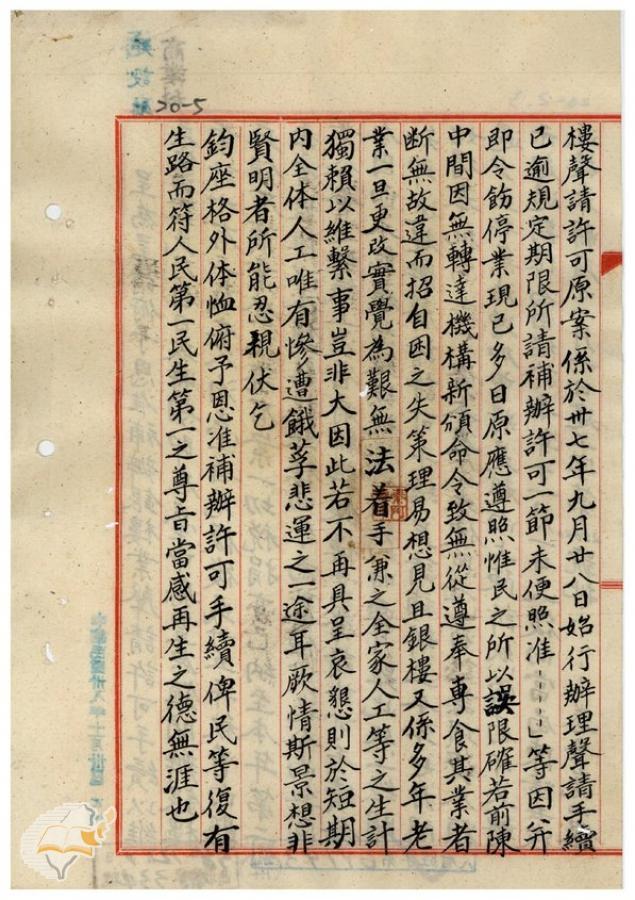 樓聲請許可原案係於卅七年九月廿八日始行辦理聲請手續
已逾規定期限所請補辦許可一節未便照准……」等因八并
即令飭停業現已多日原應遵照惟民之所以誤限確若前陳
中間因無轉達機構新頒命令致無從遵奉專食其業者
断無故違而招自困之失策理易想見且銀樓又係多年老
業一旦更改實覺為艱無法着手兼之全家人工等之生計
獨賴以維繫事豈非大因此若不再具呈哀懇則於短期
內全体人工唯有慘遭餓莩悲運之一途耳厥情斯景想非
賢明者所能忍視伏乞
鈞座格外体恤俯予恩准補辦許可手續俾民等復有
生路而符人民第一民生第一之尊旨當感再生之德無涯也
20-5